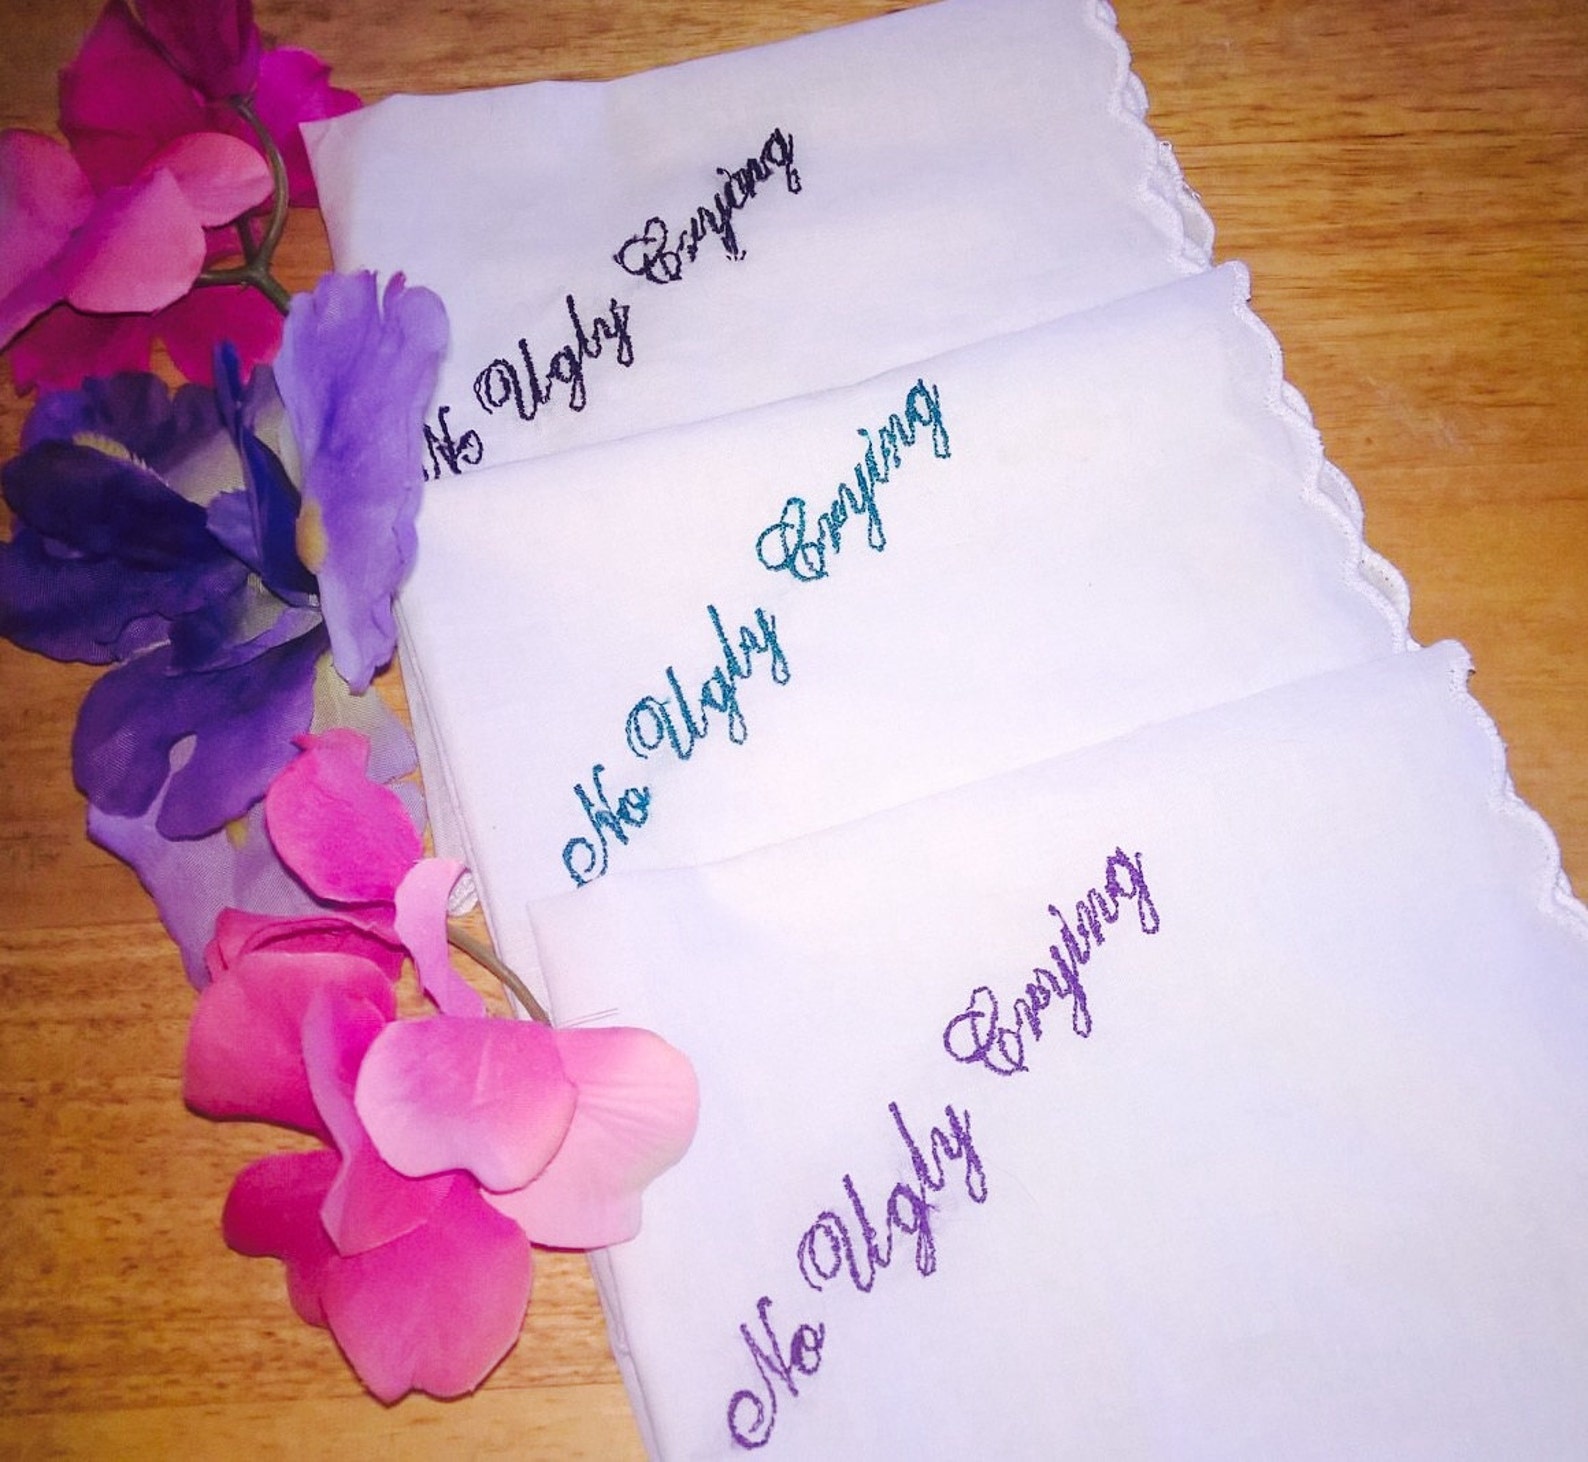 No Ugly Crying
No Ugly Crying
No Ugly Crying